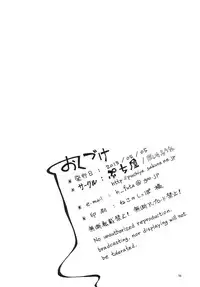 おくづけ
* 発行日: 2013/05/05
* サークル:
http://yoshiya.sakura.ne.jp
* e-mail: h_futa@goo.jp
* sp ねこのしっぽ 様
無断転載禁止! 無断アップロード禁止!
No unauthorized reproduction,
broadcasting, nor displaying will not
be tolerated.